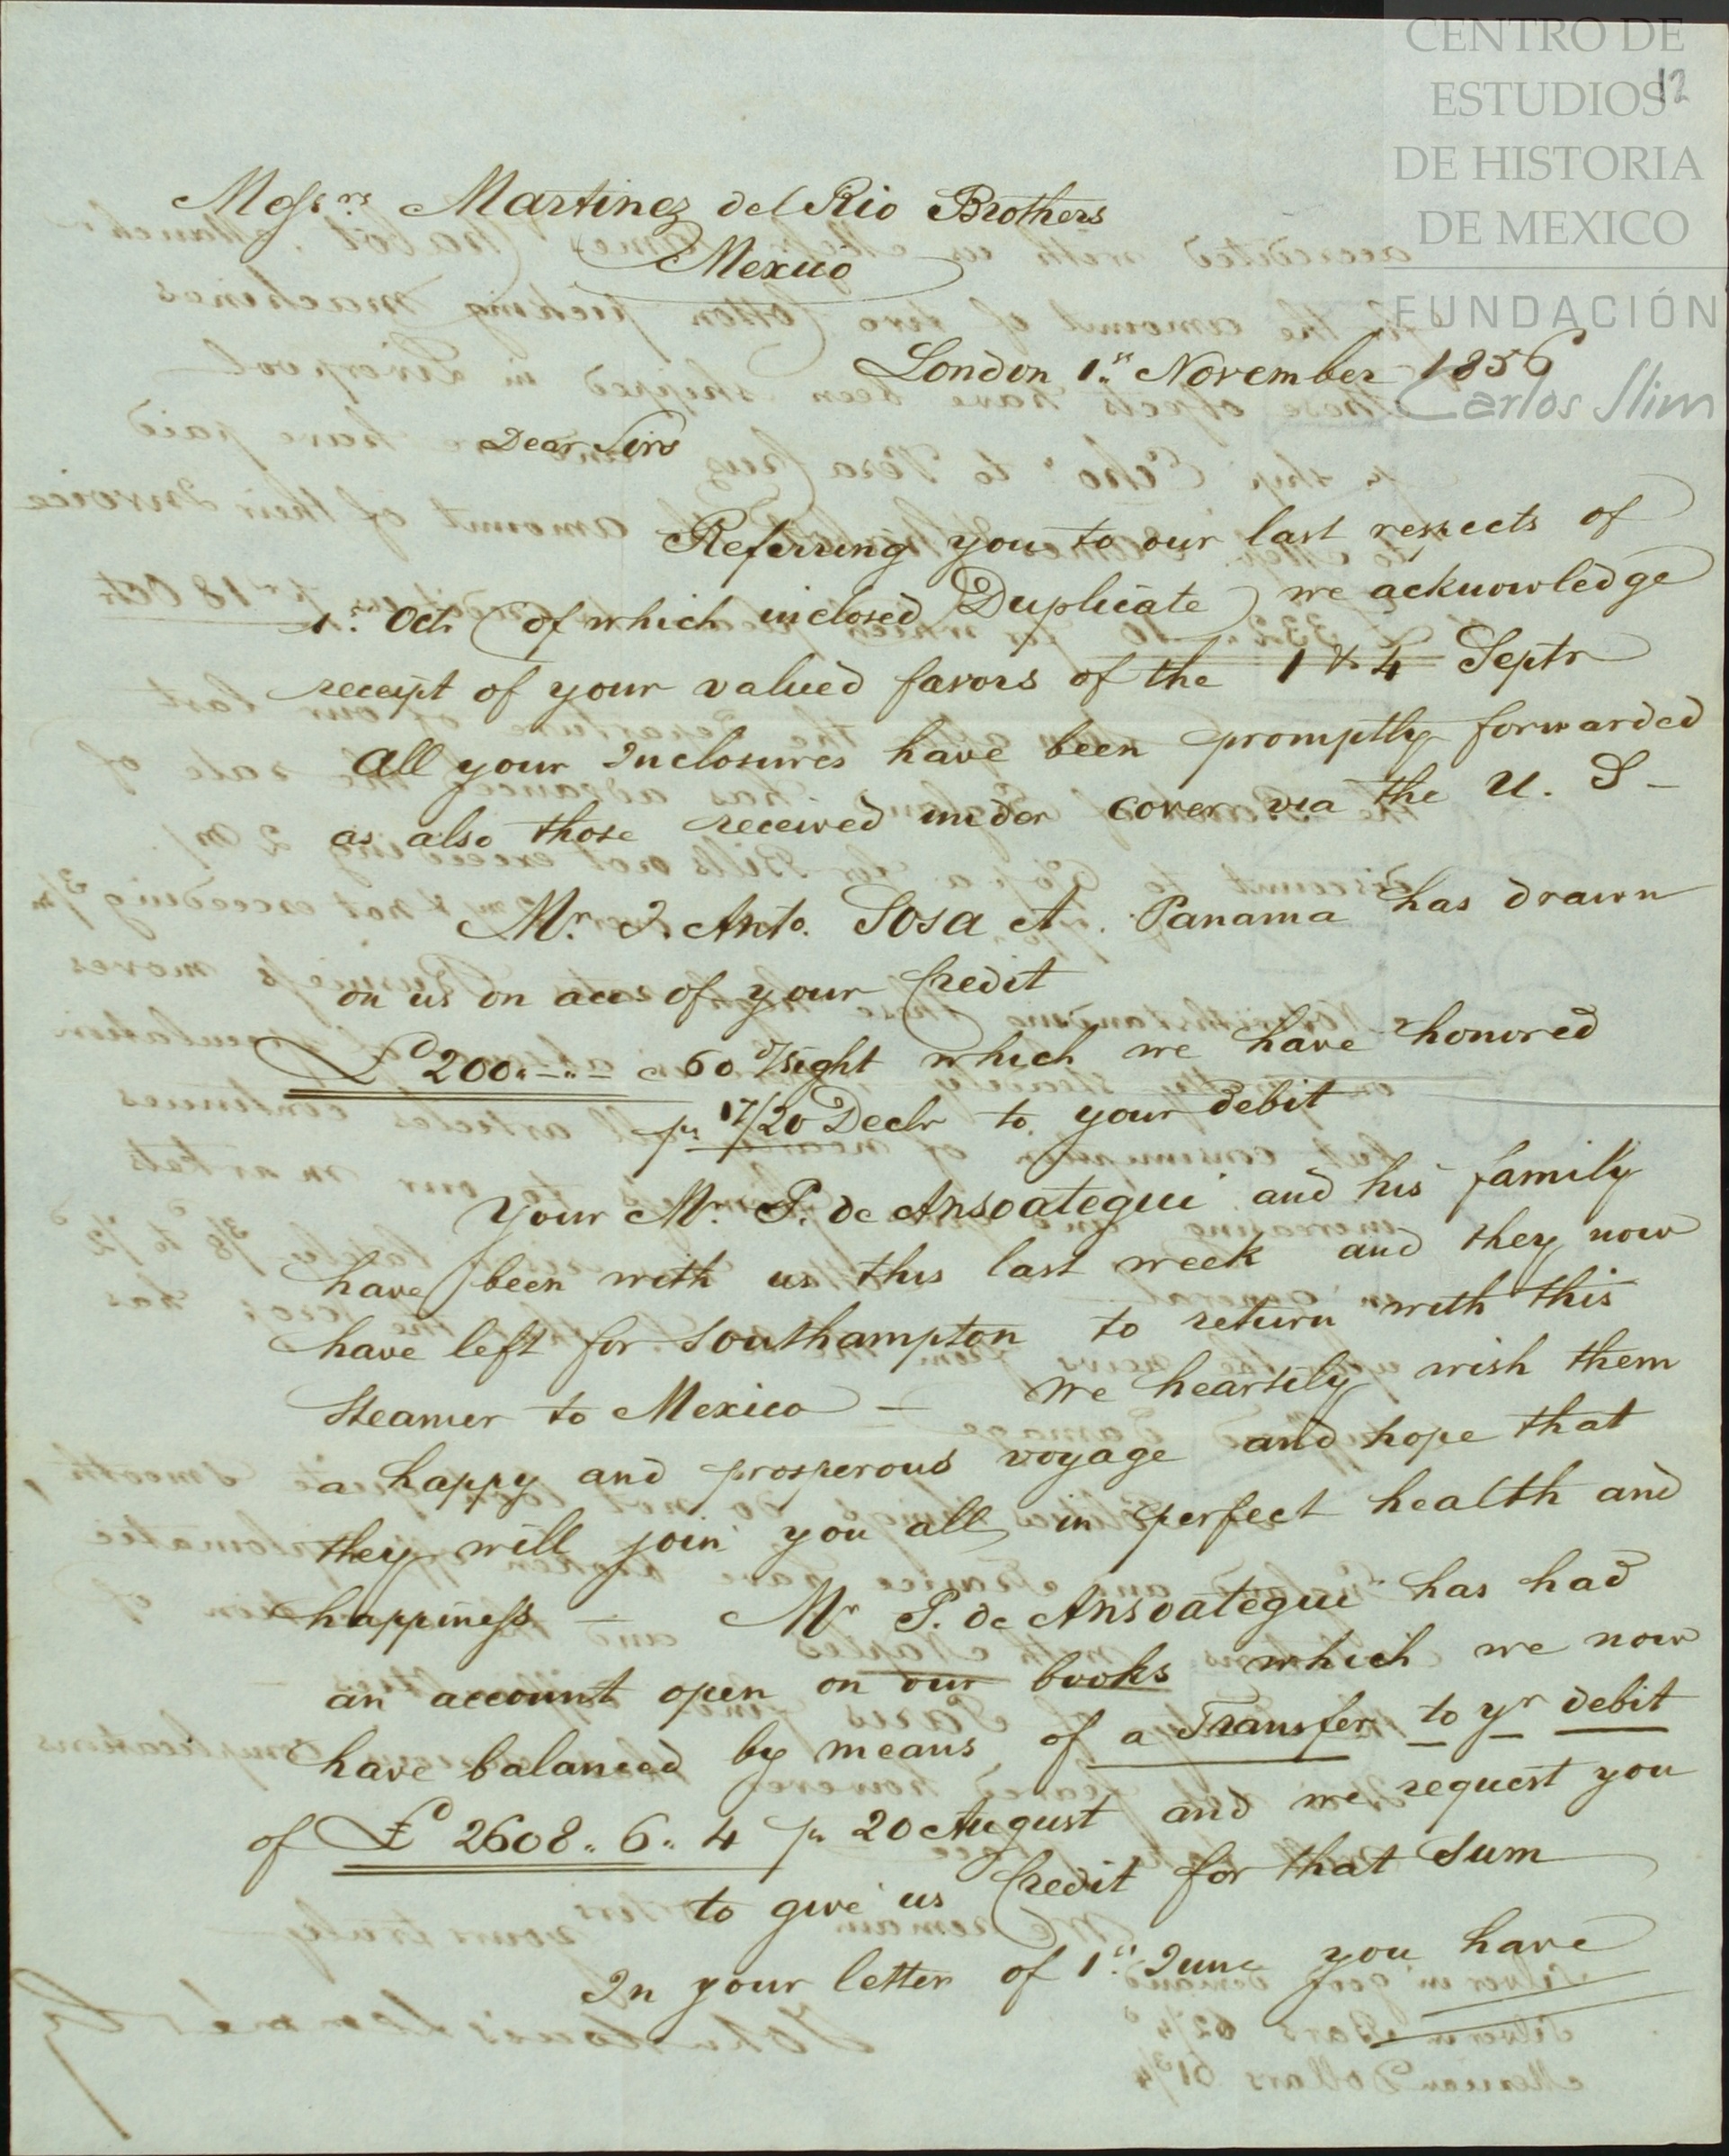 CENTRO DE
ESTUDIOS
DE HISTORIA
DE MEXICO
FUNDACIÓN
Carlos Slim
12
Messrs. Martinez del Rio Brothers
Mexico
London 1st November 1856
Dear Sirs
Referring you to our last respects of
1st Octr (of which inclosed Duplicate) we acknowledge
receipt of your valued favors of the 1 & 4 Septr
All your Inclosures have been promptly forwarded
as also those received under cover via the U. S –
Mr. J. Anto. Sosa A. Panama has drawn
on us on acct of your Credit
£ 200.-.- @ 60 d/sight which we have honored
pr 17/20 Decbr to your debit
Your Mr. P. de Ansoategui and his family
have been with us this last week and they now
have left for Southampton to return with this
Steamer to Mexico – We heartily wish them
a happy and prosperous voyage and hope that
they will join you all in perfect health and
happiness – Mr P. de Ansoategui has had
an account open on our books which we now
have balanced by means of a Transfer to yr debit
of £ 2608. 6. 4 pr 20 August and we request you
to give us Credit for that Sum
In your letter of 1st June you have